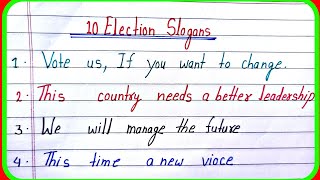 10 Election Slogans
1. Vote us, If you want to change.
2. This country needs a better leadership
3. We will manage the future
4. This time a new vioce